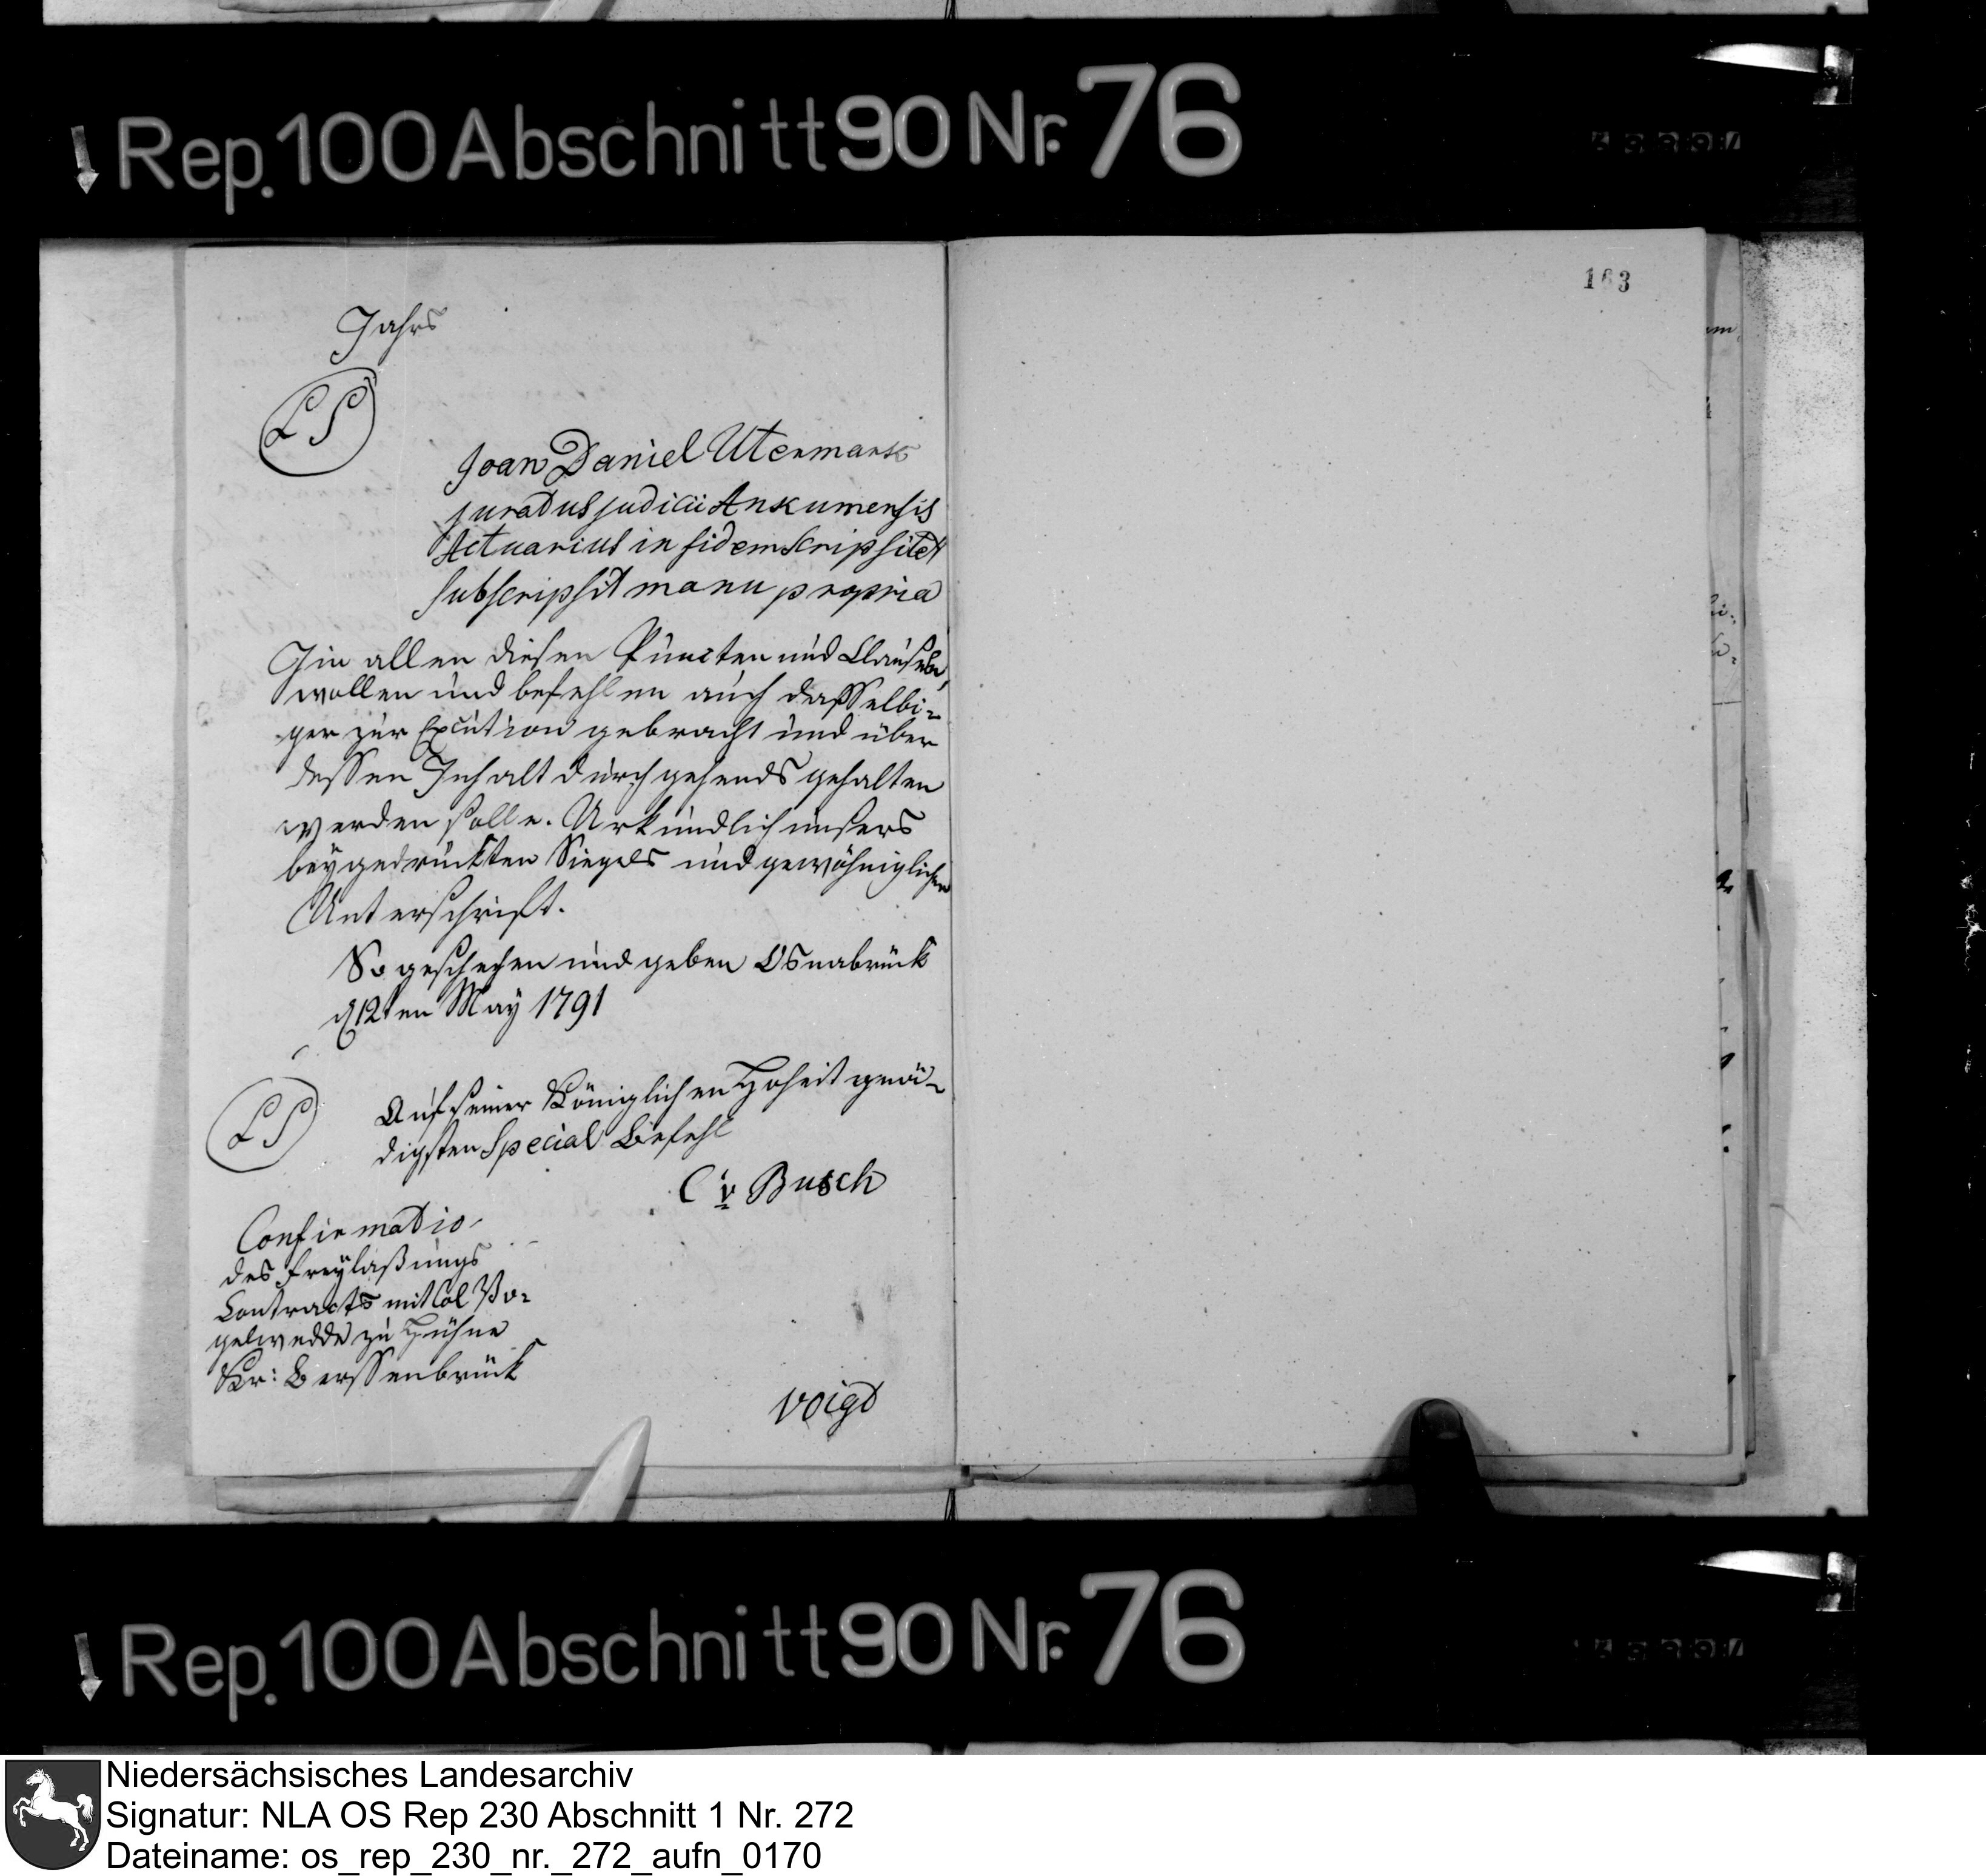 Rep. 100 Abschnitt 90 Nr. 76
163
Jahrs
LS
Joan Daniel Utermark
juratus judicii Ankumensis
Actuarius in fidem scripsit et
subscripsit manu propria
In allen diesen Puncten und Clauseln,
wollen und befehlen auch daß selbi-
ger zur Excution gebracht und über
dessen Inhalt durchgehends gehalten
werden solle. Urkundlich unsers
beygedrückten Siegels und gewöhniglichen
Unterschrift.
So geschehen und geben Osnabrück
d 12ten May 1791
LS
Auf seiner Königlichen Hoheit gnä-
digsten Special Befehl
C v Busch
Confirmatio
des Freylaßungs
Contracts mit Col Vo-
gelwedde zu
Kr: Berssenbrück
Voigt
Rep. 100 Abschnitt 90 Nr. 76
Niedersächsisches Landesarchiv
Signatur: NLA OS Rep 230 Abschnitt 1 Nr. 272
Dateiname: os_rep_230_nr._272_aufn_0170